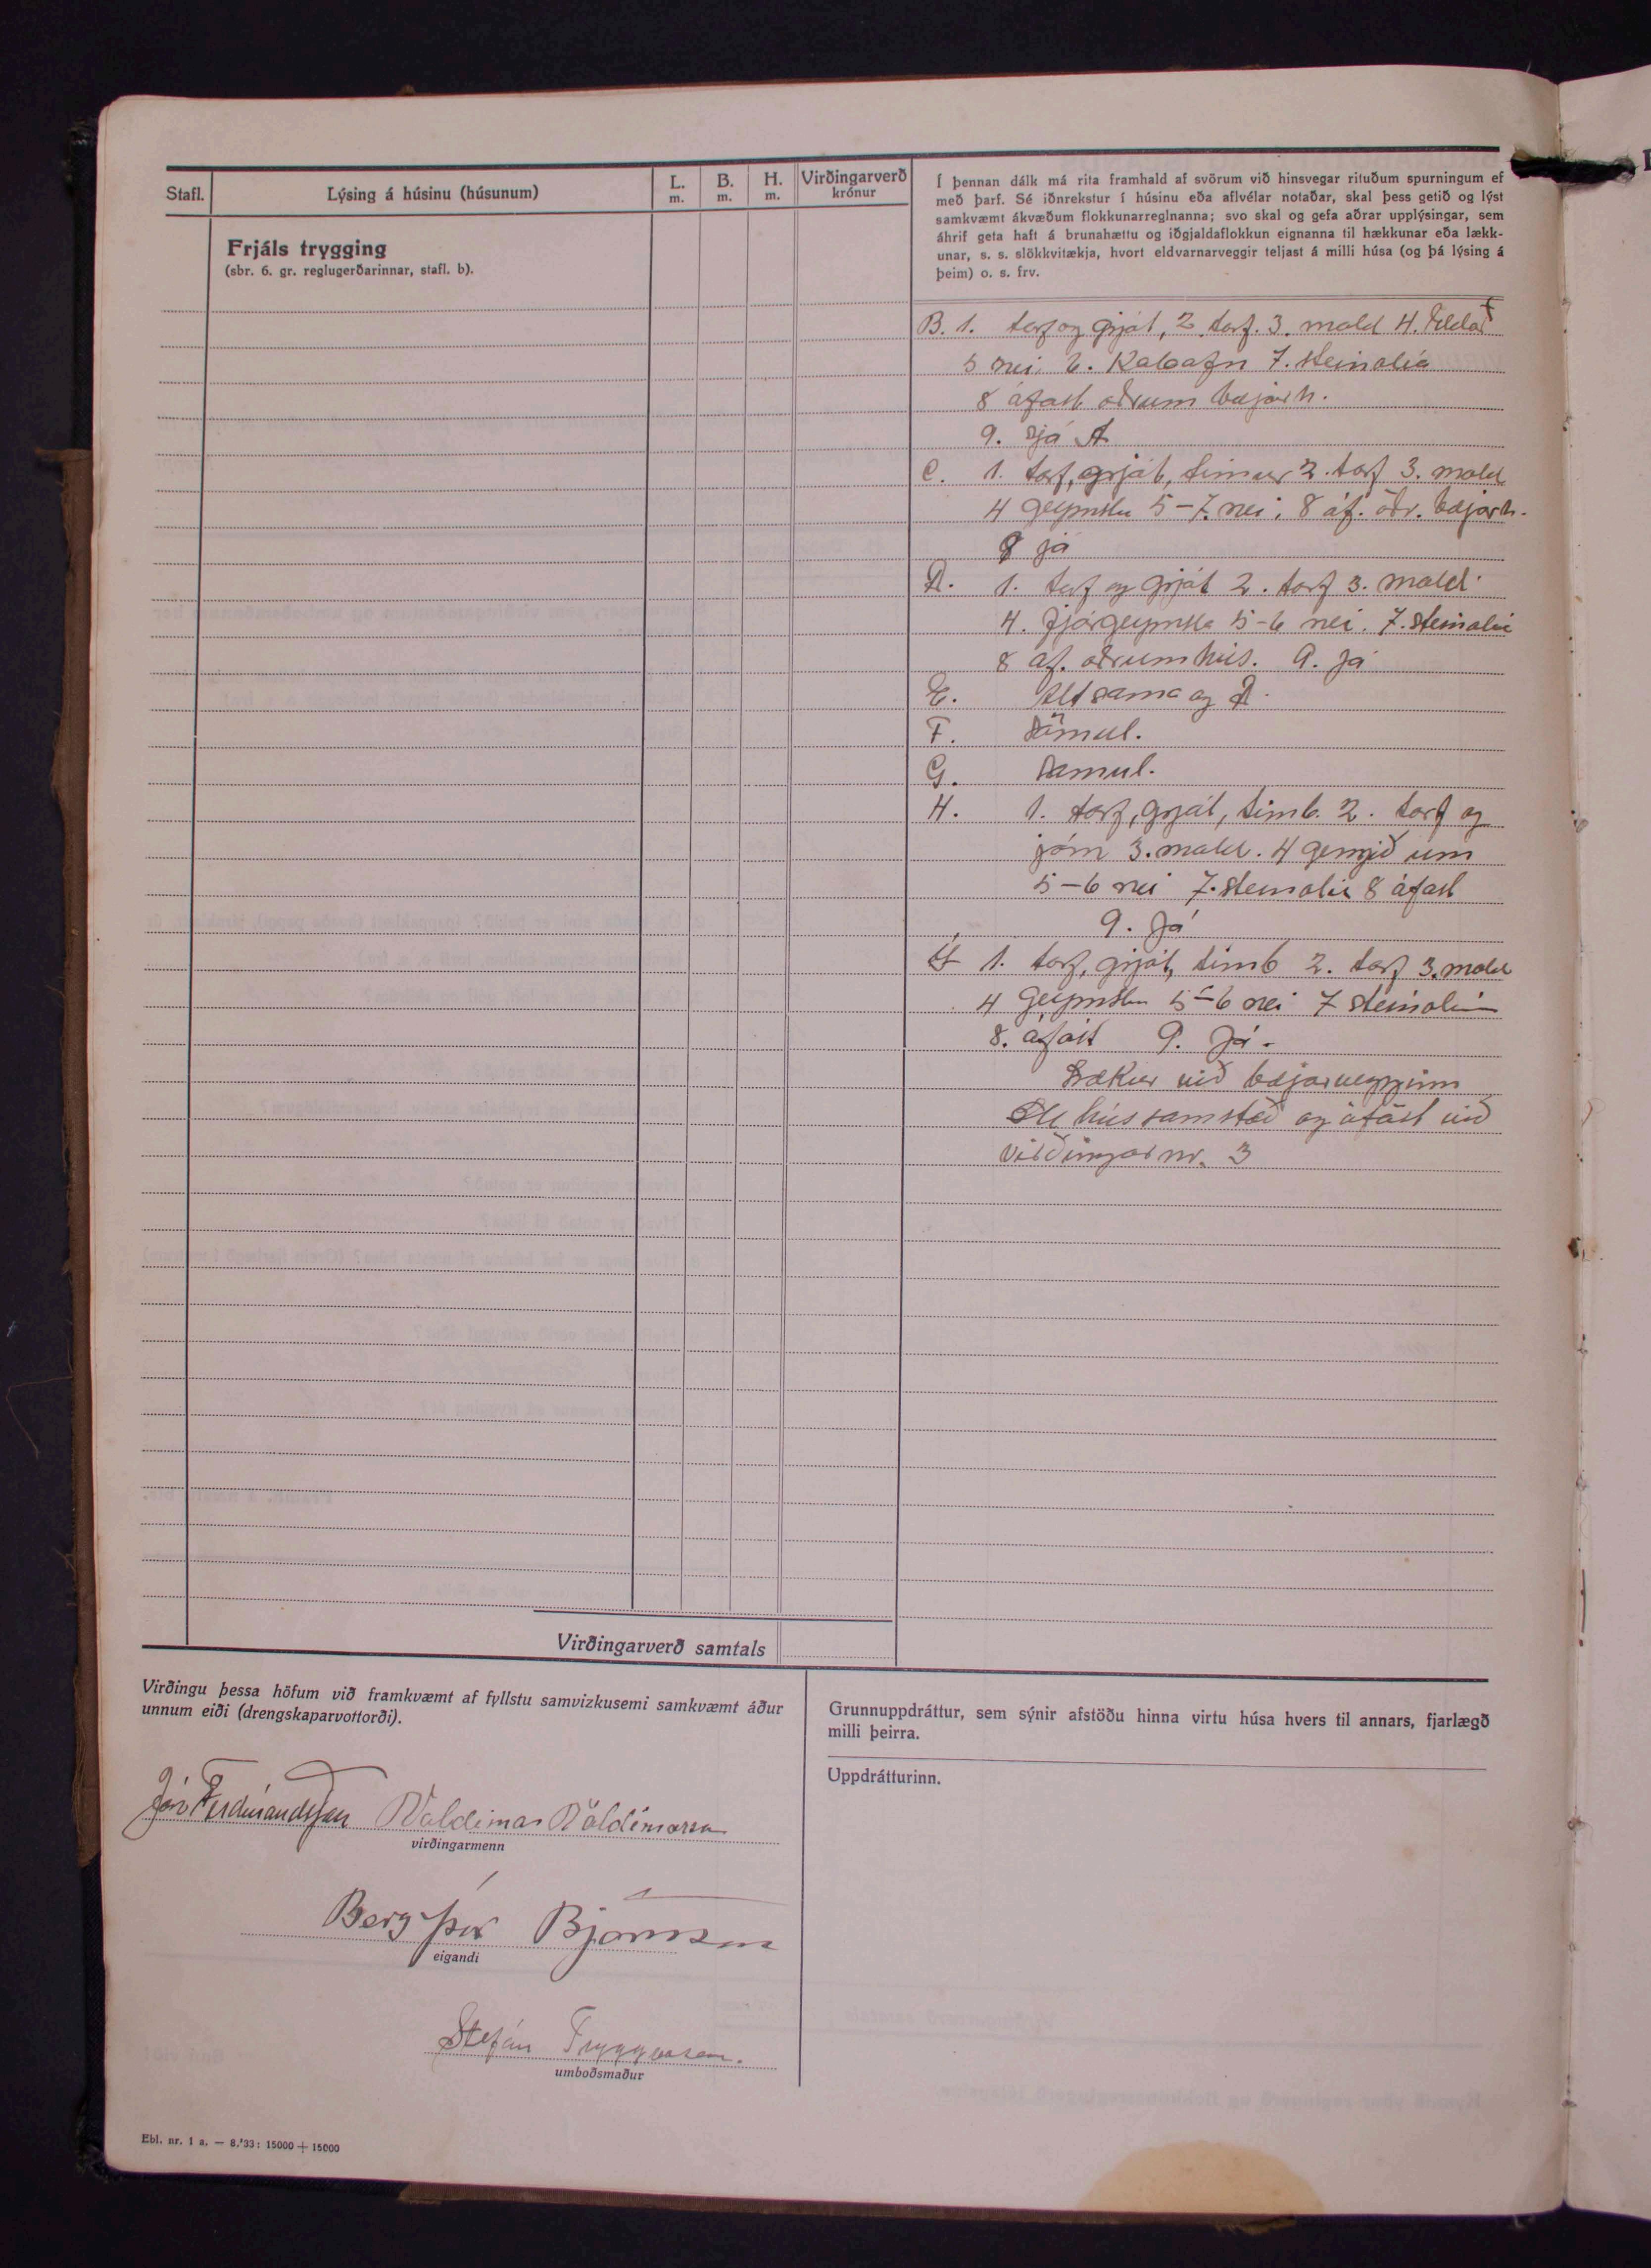 Stafl.
Lýsing á húsinu (húsunum)
L.
m.
B.
m.
H.
m.
Virðingarverð
krónur
Frjáls trygging
(sbr. 6. gr. reglugerðarinnar, stafl. b).
Í þennan dálk má rita framhald af svörum við hinsvegar rituðum spurningum ef
með þarf. Sé iðnrekstur í húsinu eða aflvélar notaðar, skal þess getið og lýst
samkvæmt ákvæðum flokkunarreglnanna; svo skal og gefa aðrar upplýsingar, sem
áhrif geta haft á brunahættu og iðgjaldaflokkun eignanna til hækkunar eða lækk-
unar, s. s. slökkvitækja, hvort eldvarnarveggir teljast á milli húsa (og þá lýsing á
þeim) o. s. frv.
B. 1. torf og grjót, 2. torf. 3. mold 4. Eldað
5 nei. 6. Kabafn 7. steinolía
8 áfast öðrum bæjarh.
9. Sjá A
C. 1. torf, grjót, timur 2. torf 3. mold
4 geymsla 5-7. nei. 8 áf. öðr. bæjarh.
9 já
D. 1. torf og grjót 2. torf 3. mold
4. fjárgeymsla 5-6 nei. 7. steinolía
8 áf. öðrum hús. 9. Já
E. Alt sama og D.
F. Sömul.
G. Samul.
H. 1. torf, grjót, timb. 2. torf og
járn 3. mold. 4 gengið um
5-6 nei 7. steinolía 8 áfast
9. Já
1. torf, grjót, timb 2. torf 3. mold
4 geymsla 5-6 nei 7 steinolía
8. áfast 9. Já.
Lækur við bæjarvegginn
Öll hús samstæð og áfast við
virðingar nr. 3
Virðingarverð samtals
Virðingu þessa höfum við framkvæmt af fyllstu samvizkusemi samkvæmt áður
unnum eiði (drengskaparvottorði).
Jón Ferdínandsson Valdimar Valdimarsson
virðingarmenn
Bergþór Björnsson
eigandi
Stefán Tryggvason.
umboðsmaður
Grunnuppdráttur, sem sýnir afstöðu hinna virtu húsa hvers til annars, fjarlægð
milli þeirra.
Uppdrátturinn.
Ebl. nr. 1 a. — 8.'33: 15000 + 15000